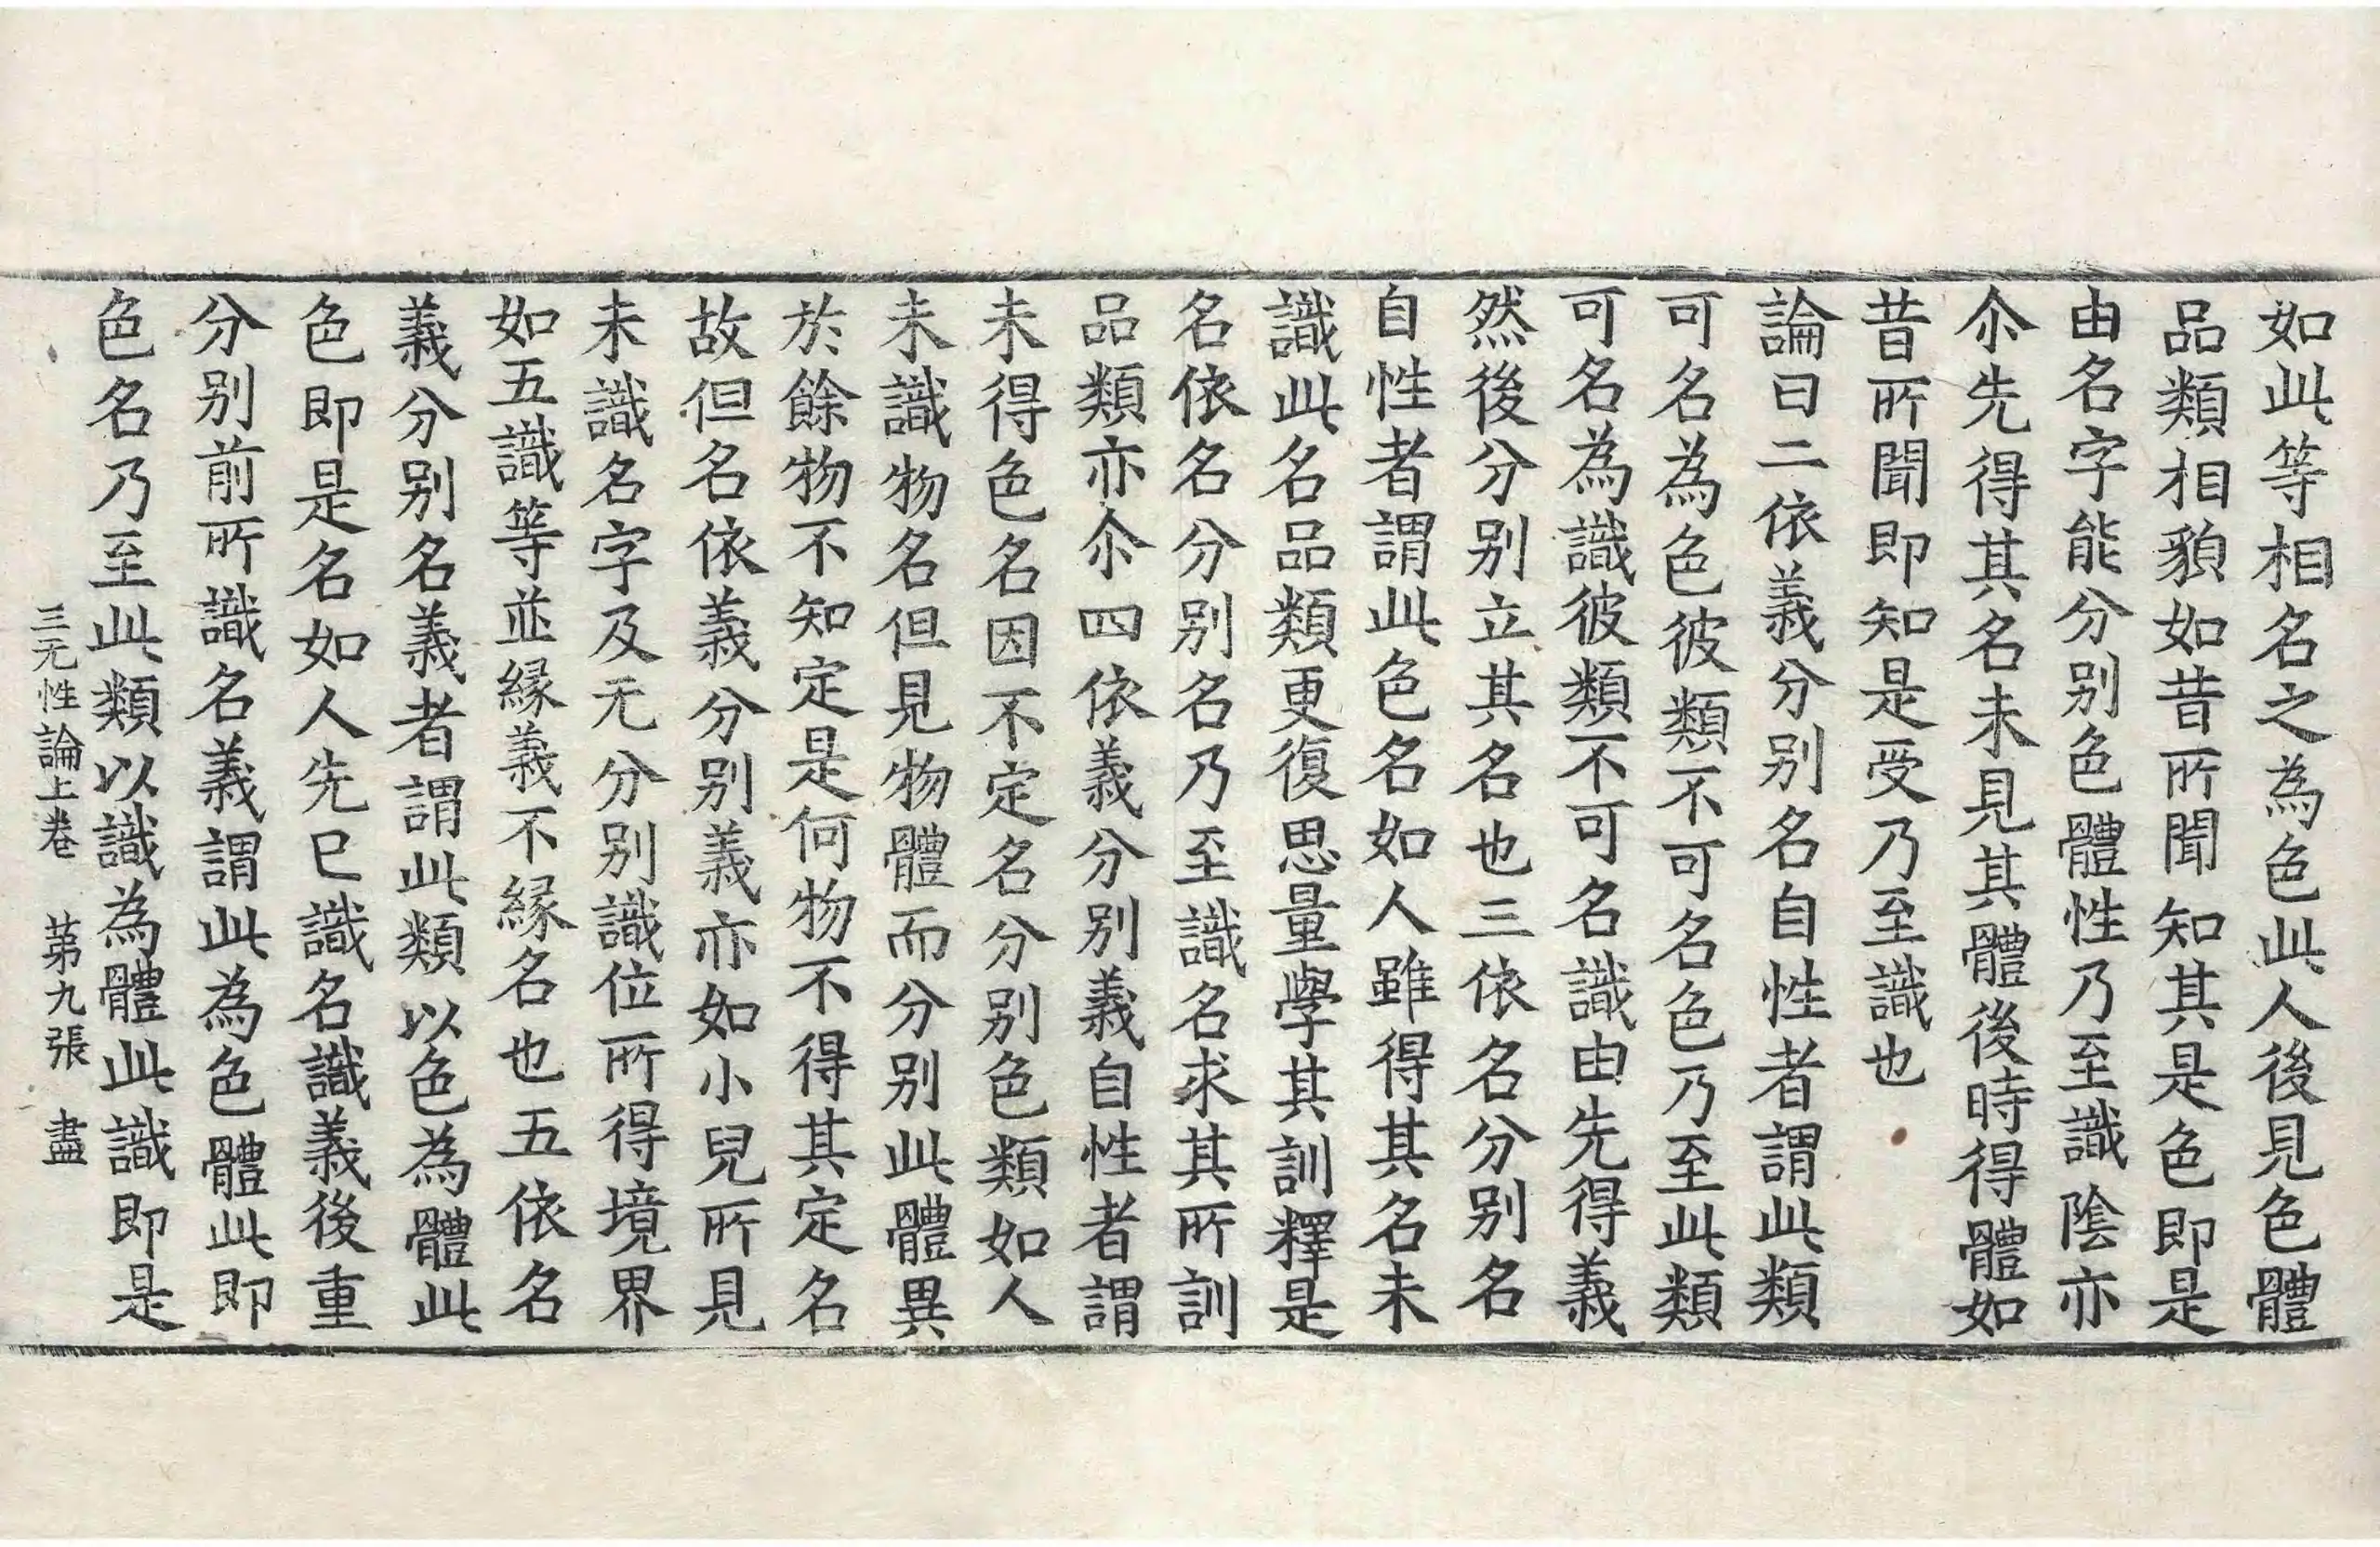 如此等相名之為色此人後見色體
品類相貌如昔所聞知其是色即是
由名字能分别色體性乃至識陰亦
尒先得其名未見其體後時得體如
昔所聞即知是受乃至識也
論曰二依義分别名自性者謂此類
可名為色彼類不可名色乃至此類
可名為識彼類不可名識由先得義
然後分别立其名也三依名分别名
自性者謂此色名如人雖得其名未
識此名品類更復思量學其訓釋是
名依名分别名乃至識名求其所訓
品類亦尒四依義分别義自性者謂
未得色名因不定名分别色類如人
未識物名但見物體而分别此體異
於餘物不知定是何物不得其定名
故但名依義分别義亦如小兒所見
未識名字及无分别識位所得境界
如五識等並緣義不緣名也五依名
義分别名義者謂此類以色為體此
色即是名如人先已識名識義後重
分别前所識名義謂此為色體此即
色名乃至此類以識為體此識即是
三无性論上卷　苐九張　盡